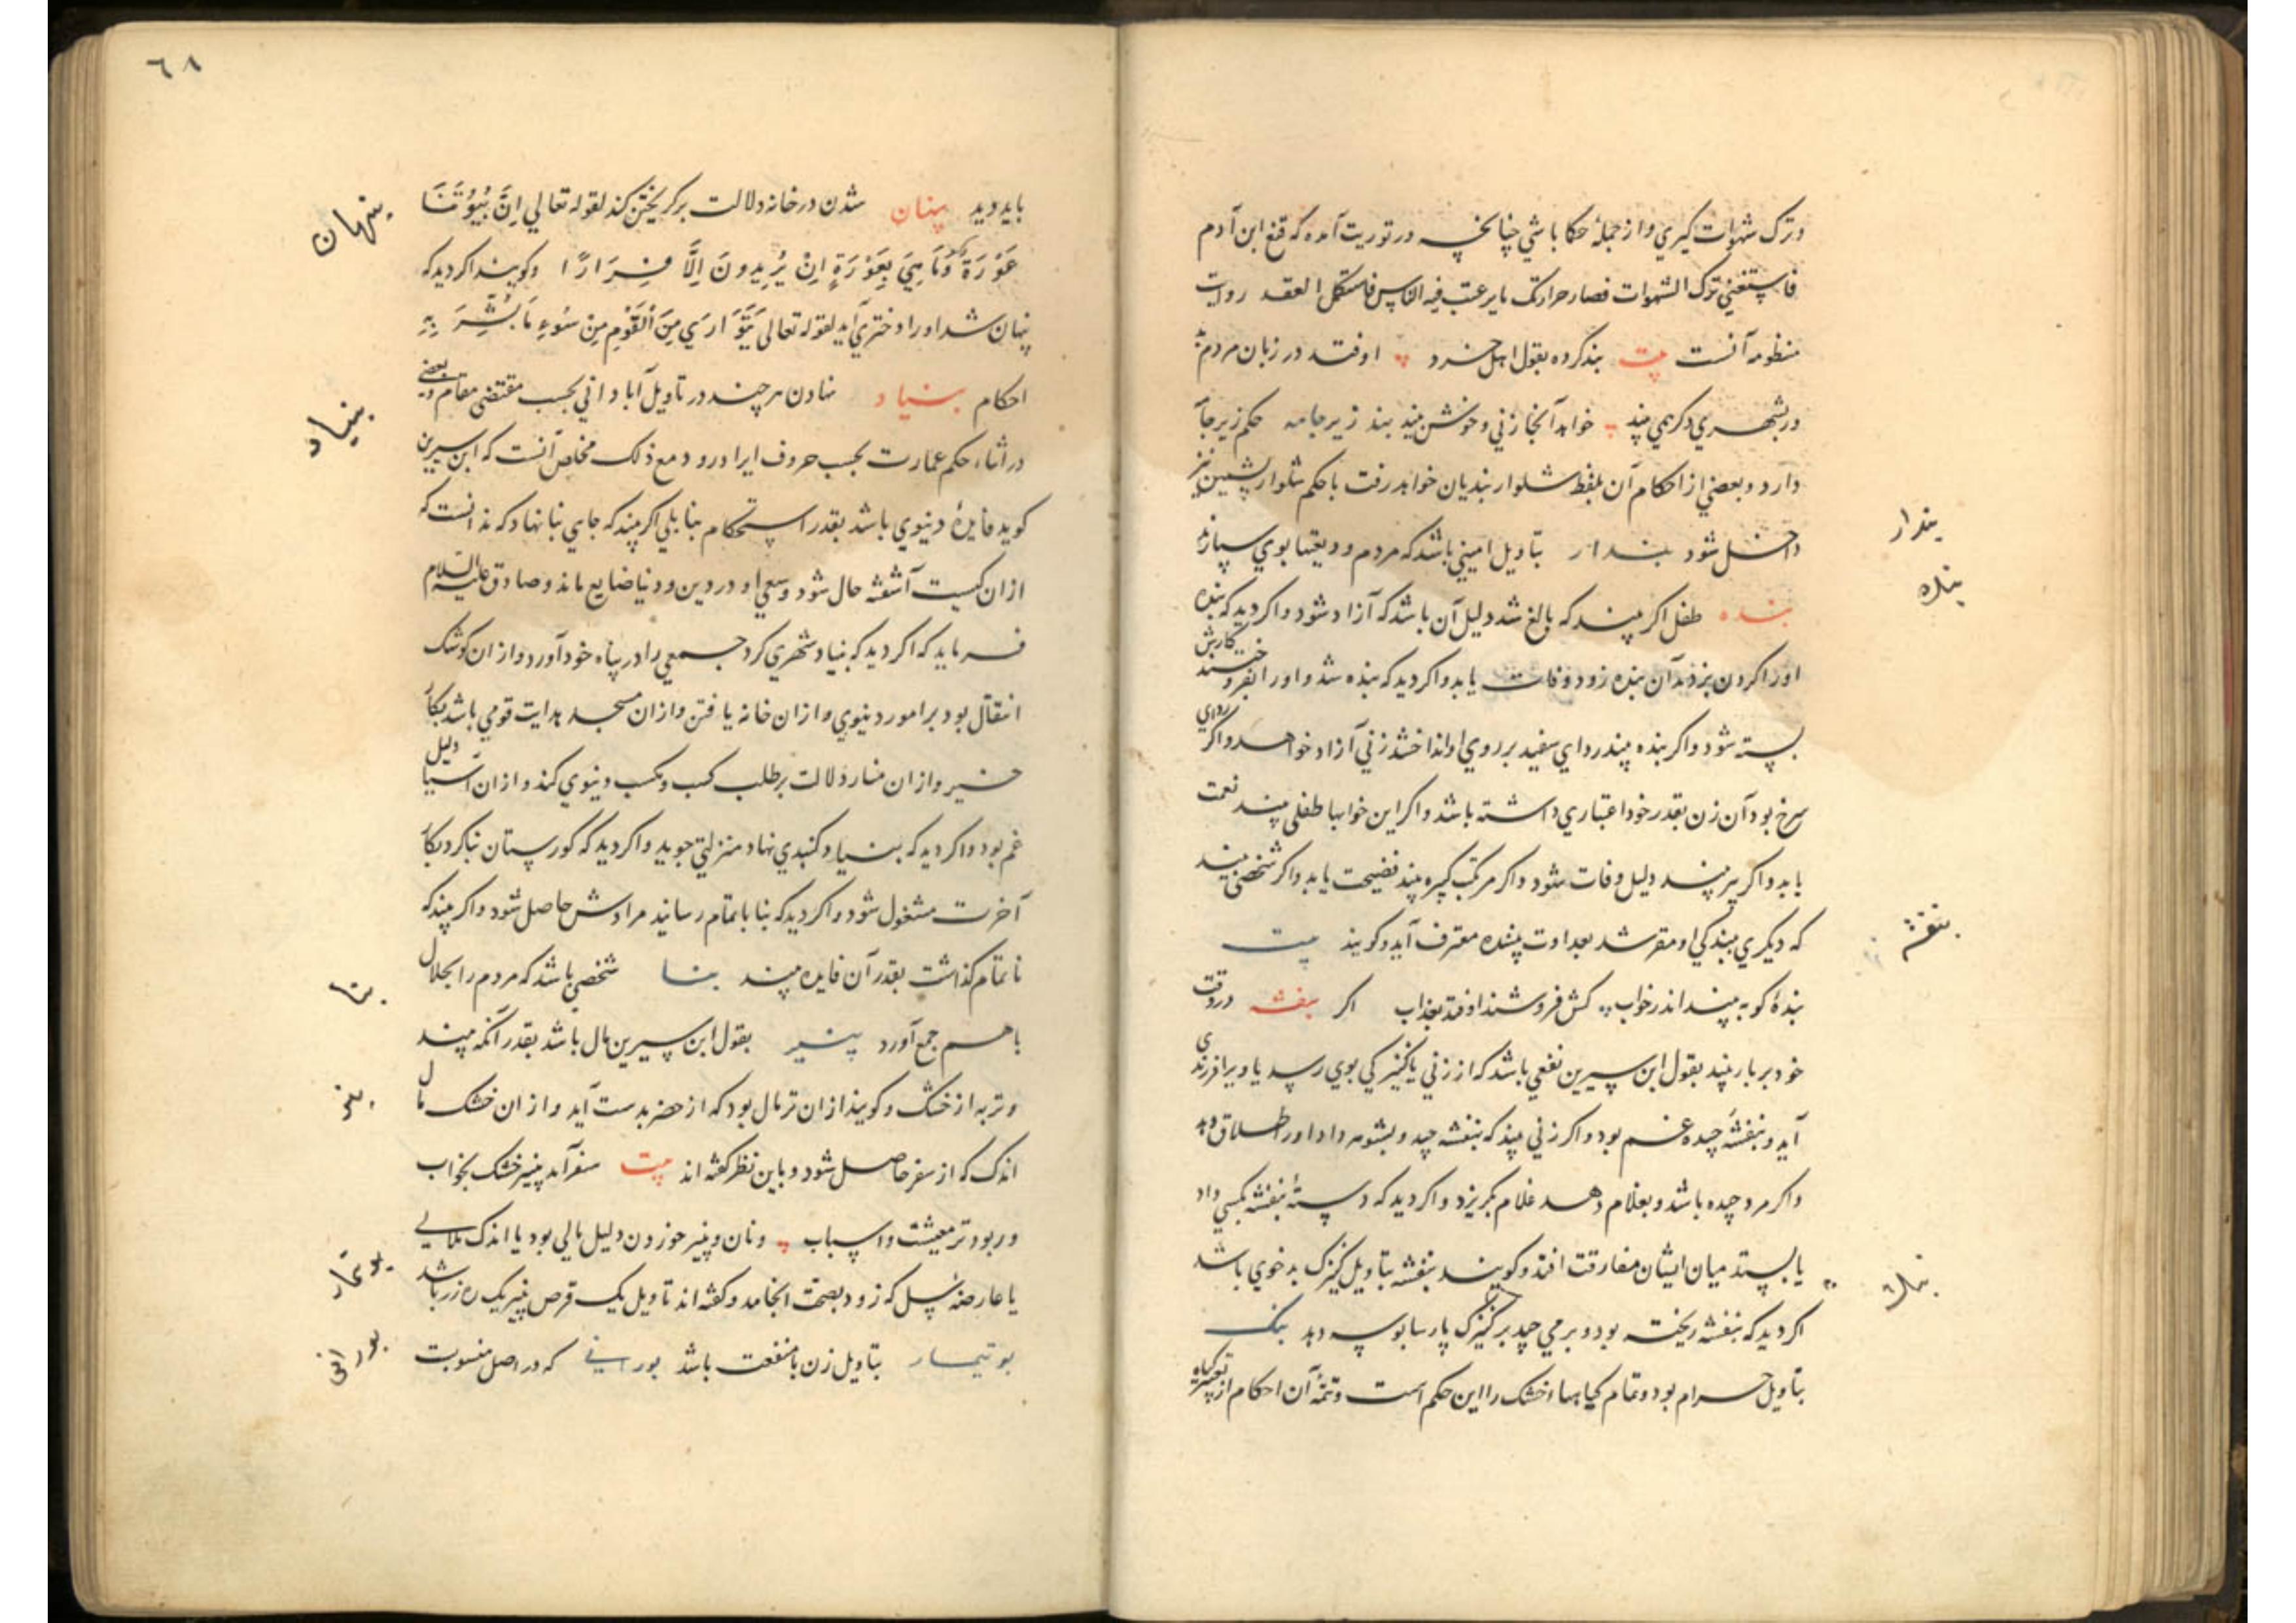 وترک شهوات کیری و از جملهٔ حکما باشی چنانچه در توریت آمده که قنع ابن آدم
فاستغنی ترک الشهوات فصار حرا ترک ما یرغب فیه الناس فاستکمل العقد روایت
منظومه آنست بیت بند کرده بقول اهل خرد اوفتد در زبان مردم بد
ور بشهری دکر همی بیند خواهد آنجا زنی و خوش بیند بند زیر جامه حکم زیر جامه
دارد و بعضی از احکام آن بلفظ شلوار بند بیان خواهد رفت با حکم شلوار پشمین نیز
داخل شود بندار بتاویل امینی باشد که مردم ودیعتها بوی سپارند
بنده طفل اکر بیند که بالغ شد دلیل آن باشد که آزاد شود و اکر دید که بنده
او را کردن بزدند آن بنده زود وفات یابد و اکر دید که بنده شد و او را بفروختند کارش
بسته شود و اکر بنده بیند ردای سفید بر روی او انداختند زنی آزاد خواهد و اکر ردای
سرخ بود آن زن بقدر خود اعتباری داشته باشد و اکر این خوابها طفلی بیند نعمت
یابد و اکر پیر بیند دلیل وفات شود و اکر مرتکب کبیره بیند فضیحت یابد و اکر شخصی بیند
که دیکری ببندکی او مقر شد بعداوت بیننده معترف آید و کویند بیت
بندهٔ کو به بیند اندر خواب کش فروشند اوفتد بعذاب اکر بنفشه در وقت
خود بر بار بیند بقول ابن سیرین نفعی باشد که از زنی یا کنیزکی بوی رسد یا ویرا فرزندی
آید و بنفشهٔ چیده غم بود و اکر زنی بیند که بنفشه چید و بشوهر داد او را طلاق دهد
و اکر مرد چیده باشد و بغلام دهد غلام بکریزد و اکر دید که دستهٔ بنفشه بکسی داد
یا بستد میان ایشان مفارقت افتد و کویند بنفشه بتاویل کنیزک بدخوی باشد
اکر دید که بنفشه ریخته بود و بر می چید بر کنیزک پارسا بوسه دهد بنک
بتاویل حرام بود و تمام کیاهها خشک را این حکم است و تتمهٔ آن احکام از تعبیر کیاه
بندار
بنده
بنفشه
بنک
٦٨
باید دید پنهان شدن در خانه دلالت بر کریختن کند لقوله تعالی اِنَّ بُیُوتَنَا
عَوْرَةٌ وَمَا هِیَ بِعَوْرَةٍ اِنْ یُرِیدُونَ اِلَّا فِرَارًا و کویند اکر دید که
پنهان شد او را دختری آید لقوله تعالی یَتَوَارَی مِنَ الْقَوْمِ مِنْ سُوءِ مَا بُشِّرَ بِهِ
احکام بنیاد نهادن هر چند در تاویل آبادانی بحسب مقتضی مقام و بعضی
در اثناء حکم عمارت بحسب حروف ایراد رود مع ذلک مخلص آنست که ابن سیرین
کوید فایدهٔ دنیوی باشد بقدر استحکام بنا بلی اکر بیند که جای بنا نهاد که ندانست که
از آن کیست آشفته حال شود و سعی او در دین و دنیا ضایع ماند و صادق علیه السلام
فرماید که اکر دید که بنیاد شهری کرد جمعی را در پناه خود آورد و از آن کوشک
انتقال بود بر امور دنیوی و از آن خانه یافتن و از آن مسجد هدایت قومی باشد بکار
خیر و از آن منار دلالت بر طلب کسب و مکسب دنیوی کند و از آن آسیا دلیل
غم بود و اکر دید که بنیاد کنبدی نهاد منزلتی جوید و اکر دید که کورستان بنا کرد بکار
آخرت مشغول شود و اکر دید که بنا باتمام رسانید مرادش حاصل شود و اکر بیند که
ناتمام کذاشت بقدر آن فایده بیند بنا شخصی باشد که مردم را بحلال
با هم جمع آورد پنیر بقول ابن سیرین مال باشد بقدر آنکه بیند
و تر به از خشک و کویند از آن تر مال بود که از حضر بدست آید و از آن خشک مال
اندک که از سفر حاصل شود و باین نظر کفته اند بیت سفر آمد پنیر خشک بخواب
ور بود تر معیشت و اسباب و نان و پنیر خوردن دلیل مالی بود یا اندک ملالی
یا عارضهٔ سهل که زود بصحت انجامد و کفته اند تاویل یک قرص پنیر یک ده زر باشد
بوتیمار بتاویل زن با منفعت باشد بورانی که در اصل منسوبست
پنهان
بنیاد
بنا
پنیر
بوتیمار
بورانی